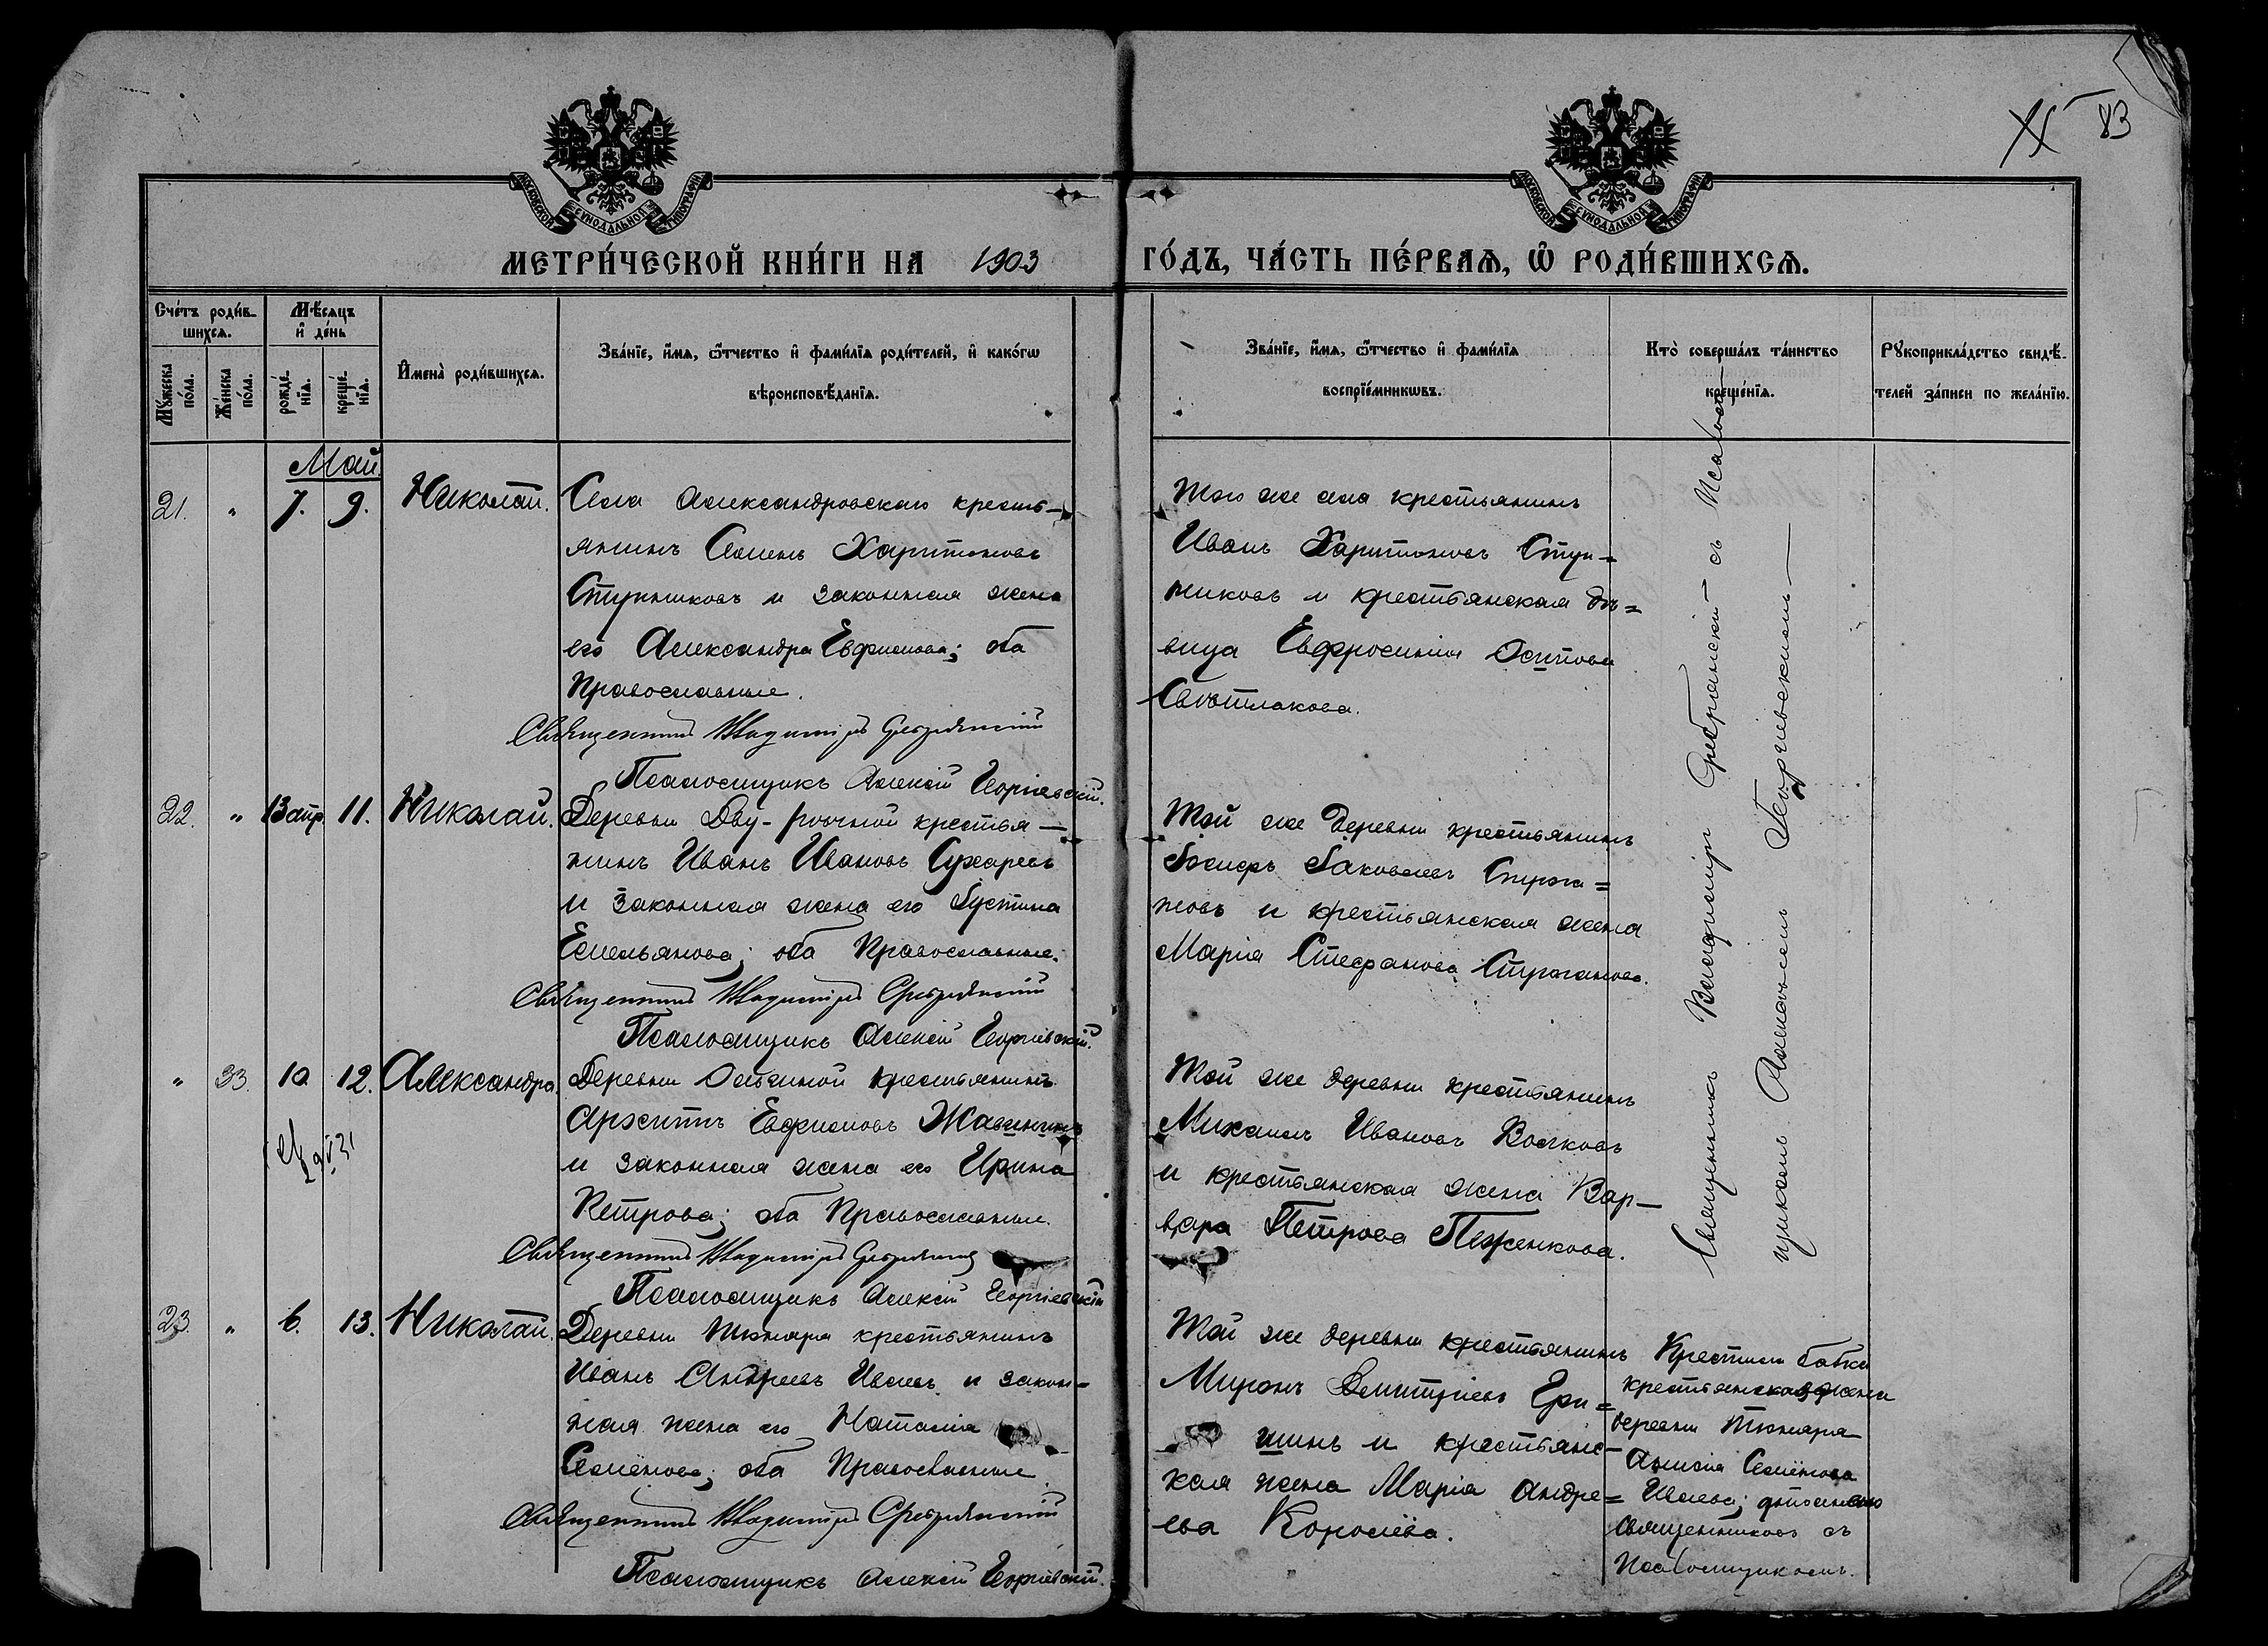 83
МОСКОВСКОЙ СУНОДАЛЬНОЙ ТИПОГРАФІИ
МОСКОВСКОЙ СУНОДАЛЬНОЙ ТИПОГРАФІИ
МЕТРИ́ЧЕСКОЙ КНИ́ГИ НА 1903 ГО́ДЪ, ЧА́СТЬ ПЕ́РВАѦ, Ѡ҆ РОДИ́ВШИХСѦ.
Сче́тъ роди́в-
шихсѧ.
Мꙋ́жеска по́ла.
Же́нска по́ла.
Мѣ́сѧцъ
и҆ де́нь
рожде́-нїѧ.
креще́-нїѧ.
И҆мена̀ роди́вшихсѧ.
Зва́нїе, и҆́мѧ, ѻ҆́тчество и҆ фами́лїѧ роди́телей, и҆ како́гѡ
вѣроисповѣ́данїѧ.
Зва́нїе, и҆́мѧ, ѻ҆́тчество и҆ фами́лїѧ
воспрїе́мникѡвъ.
Кто̀ соверша́лъ та́инство
креще́нїѧ.
Рꙋкоприкла́дство свидѣ́-
телей за́писи по жела́нїю.
Май.
21. " 7. 9. Николай.
Села Александровскаго кресть-
янинъ Семенъ Харитоновъ
Ступниковъ и законная жена
его Александра Евфимова; оба
Православные.
Священникъ Владиміръ Сребрянскій
Псаломщикъ Алексій Георгіевскій.
Того же села крестьянинъ
Иванъ Харитоновъ Ступ=
никовъ и крестьянская дѣ=
вица Евфросинія Осипова
Свѣтлакова.
22. " 13 апр. 11. Николай.
Деревни Дву-рѣчной крестья-
нинъ Иванъ Ивановъ Сухаревъ
и законная жена его Іустина
Емельянова; оба Православные.
Священникъ Владиміръ Сребрянскій
Псаломщикъ Алексій Георгіевскій.
Той же деревни крестьянинъ
Іосифъ Іаковлевъ Строга=
новъ и крестьянская жена
Марія Стефанова Строганова.
" 33. 10. 12. Александра.
Деревни крестьянинъ
Архиппъ Евфимовъ
и законная жена его Ирина
Петрова; оба Православные.
Священникъ Владиміръ Сребрянскій
Псаломщикъ Алексій Георгіевскій
Той же деревни крестьянинъ
Михаилъ Ивановъ Волковъ
и крестьянская жена Вар-
вара Петрова Пеженкова.
23. " 6. 13. Николай.
Деревни Тюняра крестьянинъ
Иванъ Андреевъ Ивлевъ и закон=
ная жена его Наталія
Семёнова; оба Православные.
Священникъ Владиміръ Сребрянскій
Псаломщикъ Алексій Георгіевскій.
Той же деревни крестьянинъ
Миронъ Димитріевъ Гри=
шинъ и крестьянс-
кая жена Марія Андре=
ева Королёва.
Священникъ Владиміръ Сребрянскій съ Псалом-
щикомъ Алексѣемъ Георгіевскимъ
Крестила бабка
крестьянская жена
деревни Тюняра
Анисія Семёнова
Ивлева; дополнено
Священникомъ съ
Псаломщикомъ.